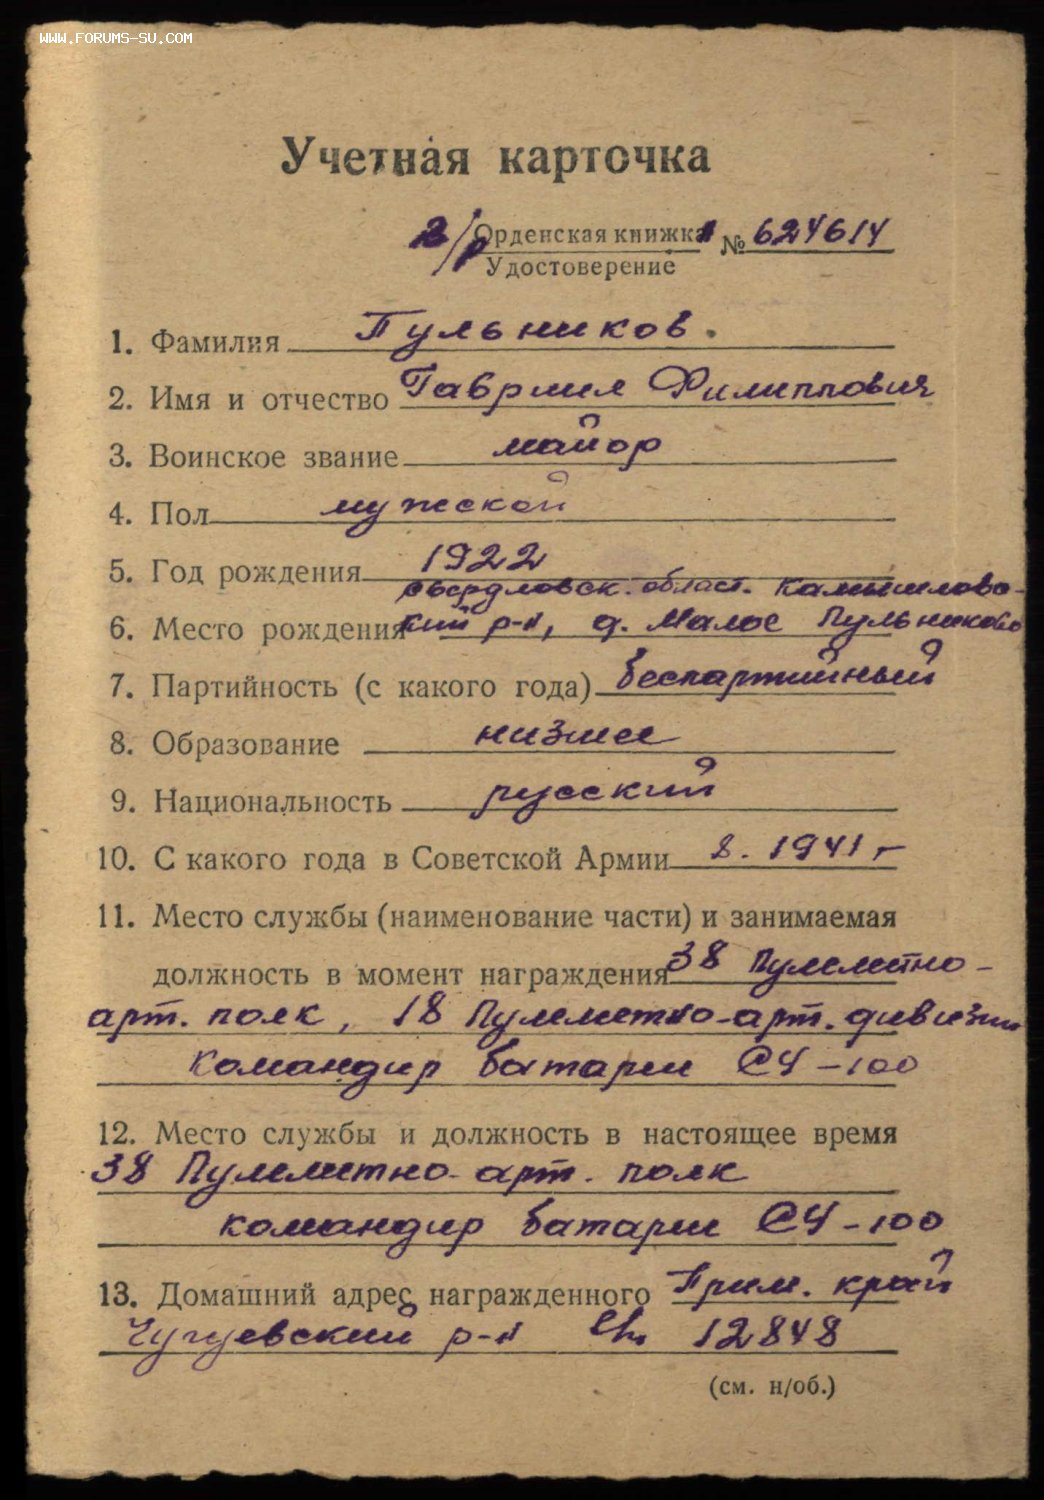 WWW.FORUMS-SU.COM
Учетная карточка
Орденская книжка № 624614
Удостоверение
1. Фамилия Пульников.
2. Имя и отчество Гавриил Филиппович
3. Воинское звание майор
4. Пол мужской
5. Год рождения 1922
свердловск. област. Камышловс-
6. Место рождения кий р-н, д. Малое Пульниково
7. Партийность (с какого года) беспартийный
8. Образование низшее
9. Национальность русский
10. С какого года в Советской Армии 8. 1941 г
11. Место службы (наименование части) и занимаемая
должность в момент награждения 38 Пулеметно-
арт. полк, 18 Пулеметно-арт. дивизии
командир батареи СУ-100
12. Место службы и должность в настоящее время
38 Пулеметно-арт. полк
командир батареи СУ-100
13. Домашний адрес награжденного Прим. край
Чугуевский р-н 12848
(см. н/об.)